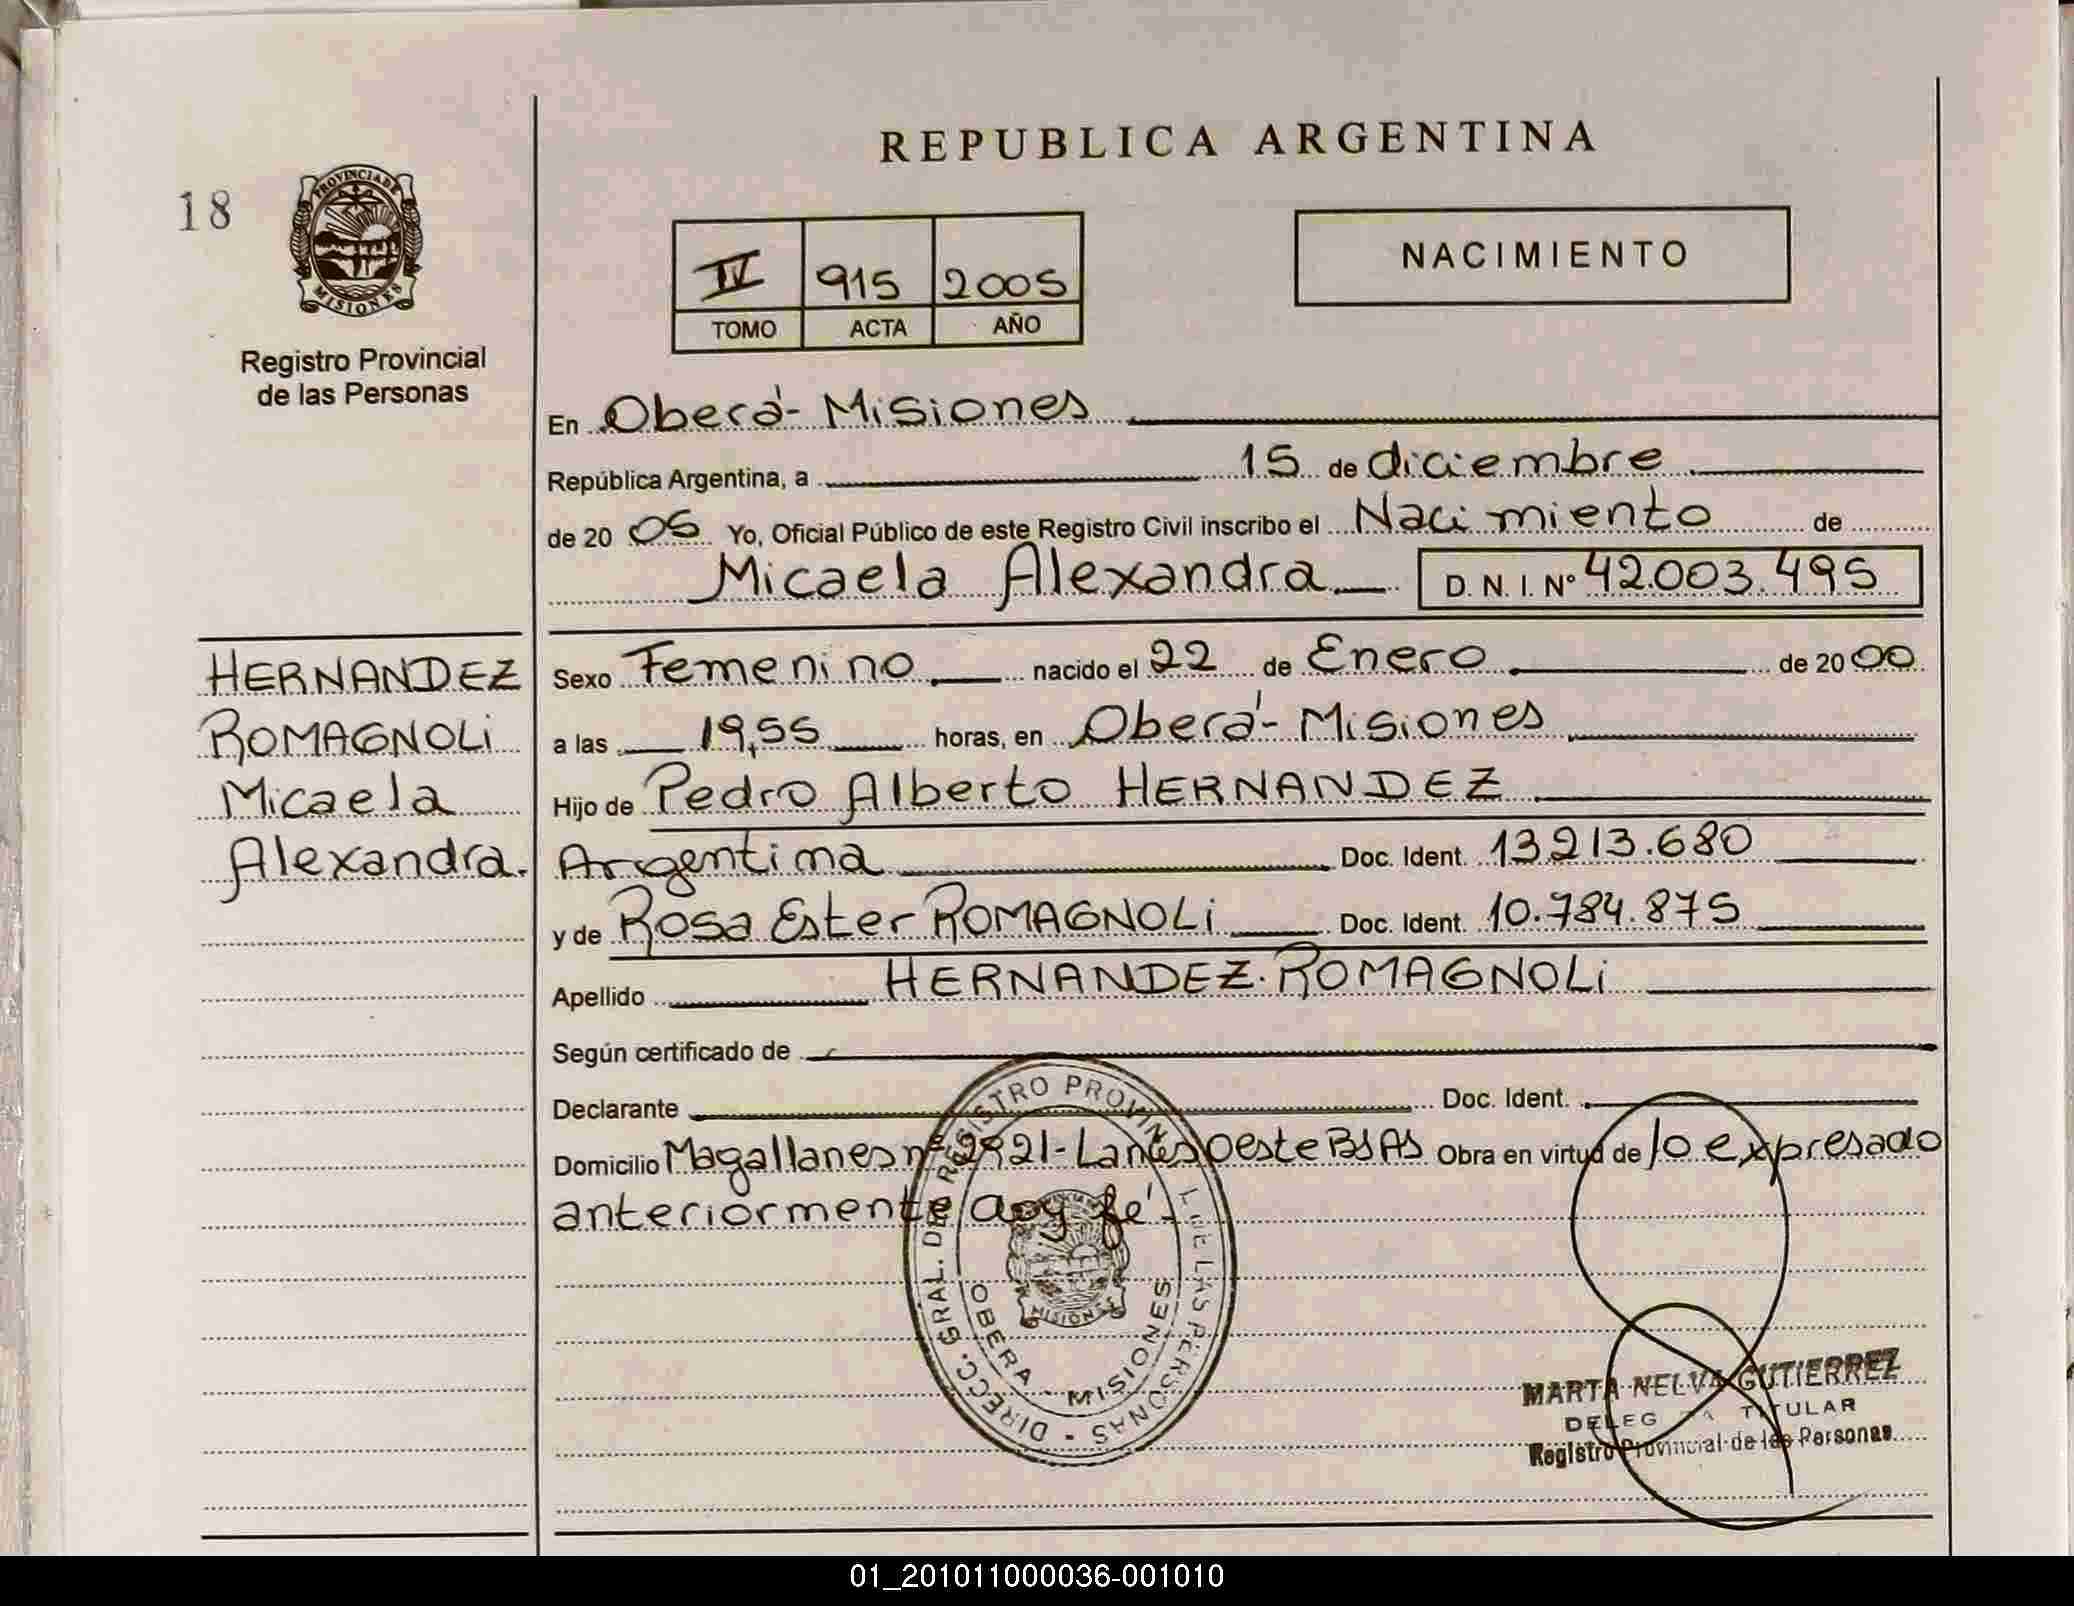 REPUBLICA ARGENTINA
18
PROVINCIA DE
MISIONES
Registro Provincial
de las Personas
IV 915 2005
TOMO ACTA AÑO
NACIMIENTO
En Oberá- Misiones
República Argentina, a 15 de diciembre
de 20 05 Yo, Oficial Público de este Registro Civil inscribo el Nacimiento de
Micaela Alexandra D. N. I. Nº 42.003.495
HERNANDEZ
ROMAGNOLi
Micaela
Alexandra.
Sexo Femenino nacido el 22 de Enero de 20 00
a las 19,55 horas, en Oberá- Misiones
Hijo de Pedro Alberto HERNANDEZ
Argentina Doc. Ident. 13.213.680
y de Rosa Ester ROMAGNOLi Doc. Ident. 10.784.875
Apellido HERNANDEZ. ROMAGNOLi
Según certificado de
Declarante Doc. Ident.
Domicilio Magallanes nº 2921- Lanús Oeste BsAs Obra en virtud de lo expresado
anteriormente doy fé.
DIRECC. GRAL. DEL REGISTRO PROVINCIAL DE LAS PERSONAS -
OBERA - MISIONES
MISIONES
MARTA NELVA GUTIERREZ
DELEGADA TITULAR
Registro Provincial de las Personas
01_201011000036-001010